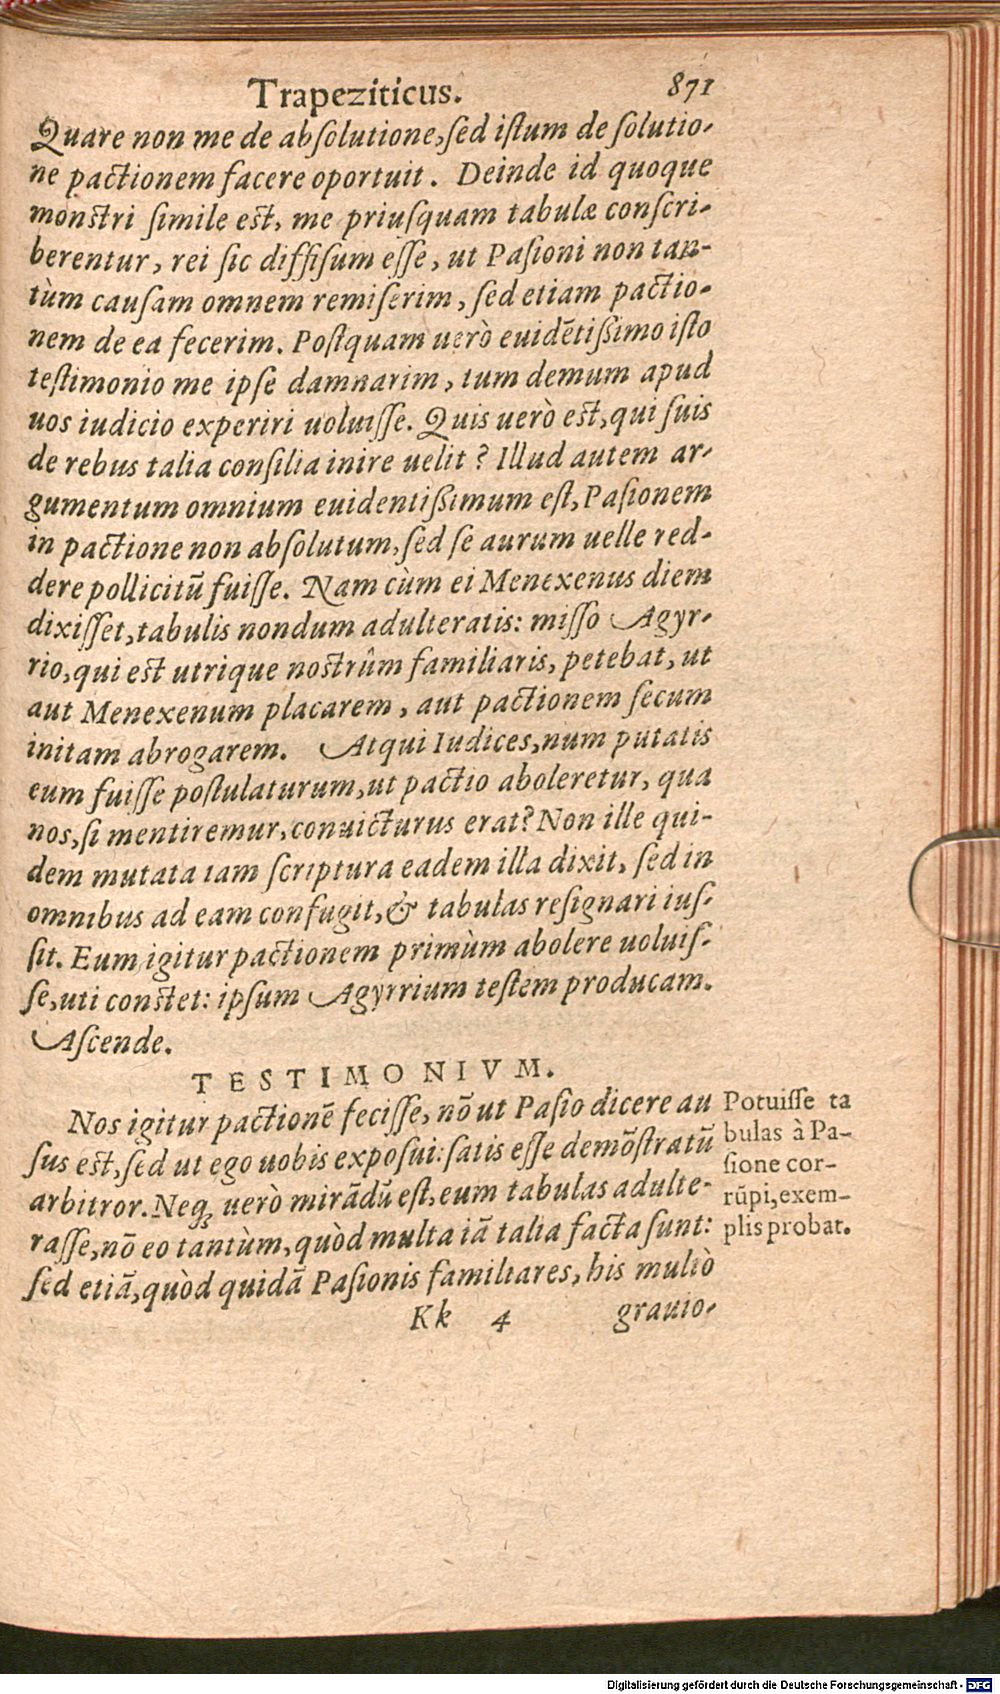 Trapeziticus. 871
Quare non me de absolutione, sed istum de solutio-
ne pactionem facere oportuit. Deinde id quoque
monstri simile est, me priusquam tabulæ conscri-
berentur, rei sic diffisum esse, ut Pasioni non tan-
tùm causam omnem remiserim, sed etiam pactio-
nem de ea fecerim. Postquam uerò euidẽtißimo isto
testimonio me ipse damnarim, tum demum apud
uos iudicio experiri uoluisse. Quis uerò est, qui suis
de rebus talia consilia inire uelit? Illud autem ar-
gumentum omnium euidentißimum est, Pasionem
in pactione non absolutum, sed se aurum uelle red-
dere pollicitũ fuisse. Nam cùm ei Menexenus diem
dixisset, tabulis nondum adulteratis: misso Agyr-
rio, qui est utrique nostrûm familiaris, petebat, ut
aut Menexenum placarem, aut pactionem secum
initam abrogarem. Atqui Iudices, num putatis
eum fuisse postulaturum, ut pactio aboleretur, qua
nos, si mentiremur, conuicturus erat? Non ille qui-
dem mutata iam scriptura eadem illa dixit, sed in
omnibus ad eam confugit, & tabulas resignari ius-
sit. Eum igitur pactionem primùm abolere uoluis-
se, uti constet: ipsum Agyrrium testem producam.
Ascende.
TESTIMONIVM.
Nos igitur pactionẽ fecisse, nõ ut Pasio dicere au
sus est, sed ut ego uobis exposui: satis esse demõstratũ
arbitror. Neq; uerò mirãdũ est, eum tabulas adulte-
rasse, nõ eo tantùm, quòd multa iã talia facta sunt:
sed etiã, quòd quidã Pasionis familiares, his multò
Potuisse ta
bulas à Pa-
sione cor-
rũpi, exem-
plis probat.
Kk 4 grauio-
Digitalisierung gefördert durch die Deutsche Forschungsgemeinschaft - DFG